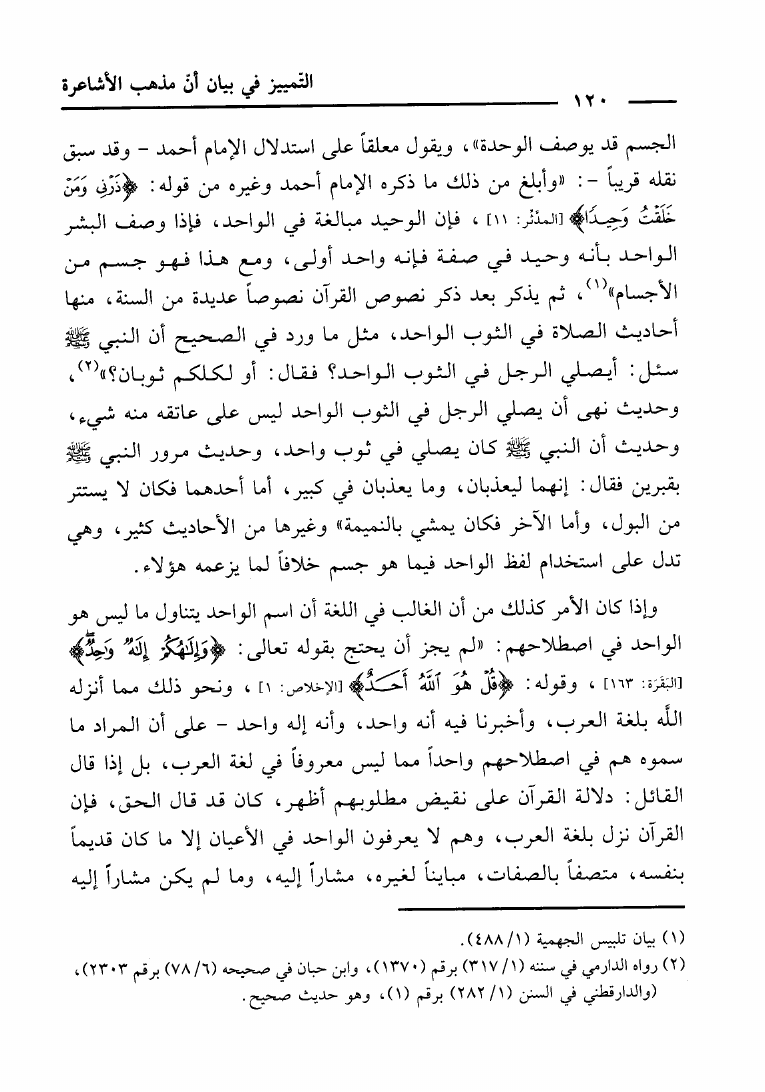 التّمييز في بيان أنّ مذهب الأشاعرة
١٢٠
الجسم قد يوصف الوحدة»، ويقول معلقاً على استدلال الإمام أحمد - وقد سبق
نقله قريباً -: «وأبلغ من ذلك ما ذكره الإمام أحمد وغيره من قوله: ﴿ذَرْنِي وَمَنْ
خَلَقْتُ وَحِيدًا﴾ [المدّثّر: ١١]، فإن الوحيد مبالغة في الواحد، فإذا وصف البشر
الواحد بأنه وحيد في صفة فإنه واحد أولى، ومع هذا فهو جسم من
الأجسام»(١)، ثم يذكر بعد ذكر نصوص القرآن نصوصاً عديدة من السنة، منها
أحاديث الصلاة في الثوب الواحد، مثل ما ورد في الصحيح أن النبي ﷺ
سئل: أيصلي الرجل في الثوب الواحد؟ فقال: أو لكلكم ثوبان؟»(٢)،
وحديث نهى أن يصلي الرجل في الثوب الواحد ليس على عاتقه منه شيء،
وحديث أن النبي ﷺ كان يصلي في ثوب واحد، وحديث مرور النبي ﷺ
بقبرين فقال: إنهما ليعذبان، وما يعذبان في كبير، أما أحدهما فكان لا يستتر
من البول، وأما الآخر فكان يمشي بالنميمة» وغيرها من الأحاديث كثير، وهي
تدل على استخدام لفظ الواحد فيما هو جسم خلافاً لما يزعمه هؤلاء.
وإذا كان الأمر كذلك من أن الغالب في اللغة أن اسم الواحد يتناول ما ليس هو
الواحد في اصطلاحهم: «لم يجز أن يحتج بقوله تعالى: ﴿وَإِلَٰهُكُمْ إِلَٰهٌ وَاحِدٌ﴾
[البَقَرَة: ١٦٣]، وقوله: ﴿قُلْ هُوَ ٱللَّهُ أَحَدٌ﴾ [الإخلاص: ١]، ونحو ذلك مما أنزله
اللَّه بلغة العرب، وأخبرنا فيه أنه واحد، وأنه إله واحد - على أن المراد ما
سموه هم في اصطلاحهم واحداً مما ليس معروفاً في لغة العرب، بل إذا قال
القائل: دلالة القرآن على نقيض مطلوبهم أظهر، كان قد قال الحق، فإن
القرآن نزل بلغة العرب، وهم لا يعرفون الواحد في الأعيان إلا ما كان قديماً
بنفسه، متصفاً بالصفات، مبايناً لغيره، مشاراً إليه، وما لم يكن مشاراً إليه
(١) بيان تلبيس الجهمية (١/ ٤٨٨).
(٢) رواه الدارمي في سننه (١/ ٣١٧) برقم (١٣٧٠)، وابن حبان في صحيحه (٦/ ٧٨) برقم ٢٣٠٣)،
(والدارقطني في السنن (١/ ٢٨٢) برقم (١)، وهو حديث صحيح.